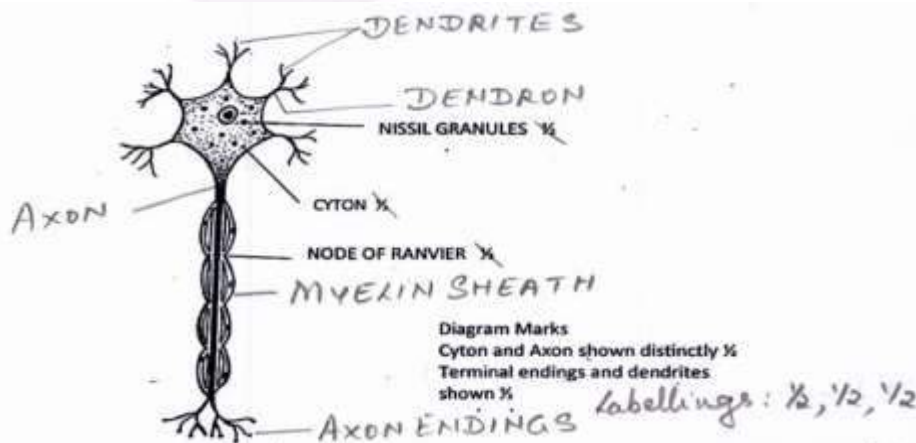 DENDRITES
DENDRON
NISSIL GRANULES ½
CYTON ½
AXON
NODE OF RANVIER ½
MYELIN SHEATH
Diagram Marks
Cyton and Axon shown distinctly ½
Terminal endings and dendrites
shown ½
Labellings: ½, ½, ½
AXON ENDINGS